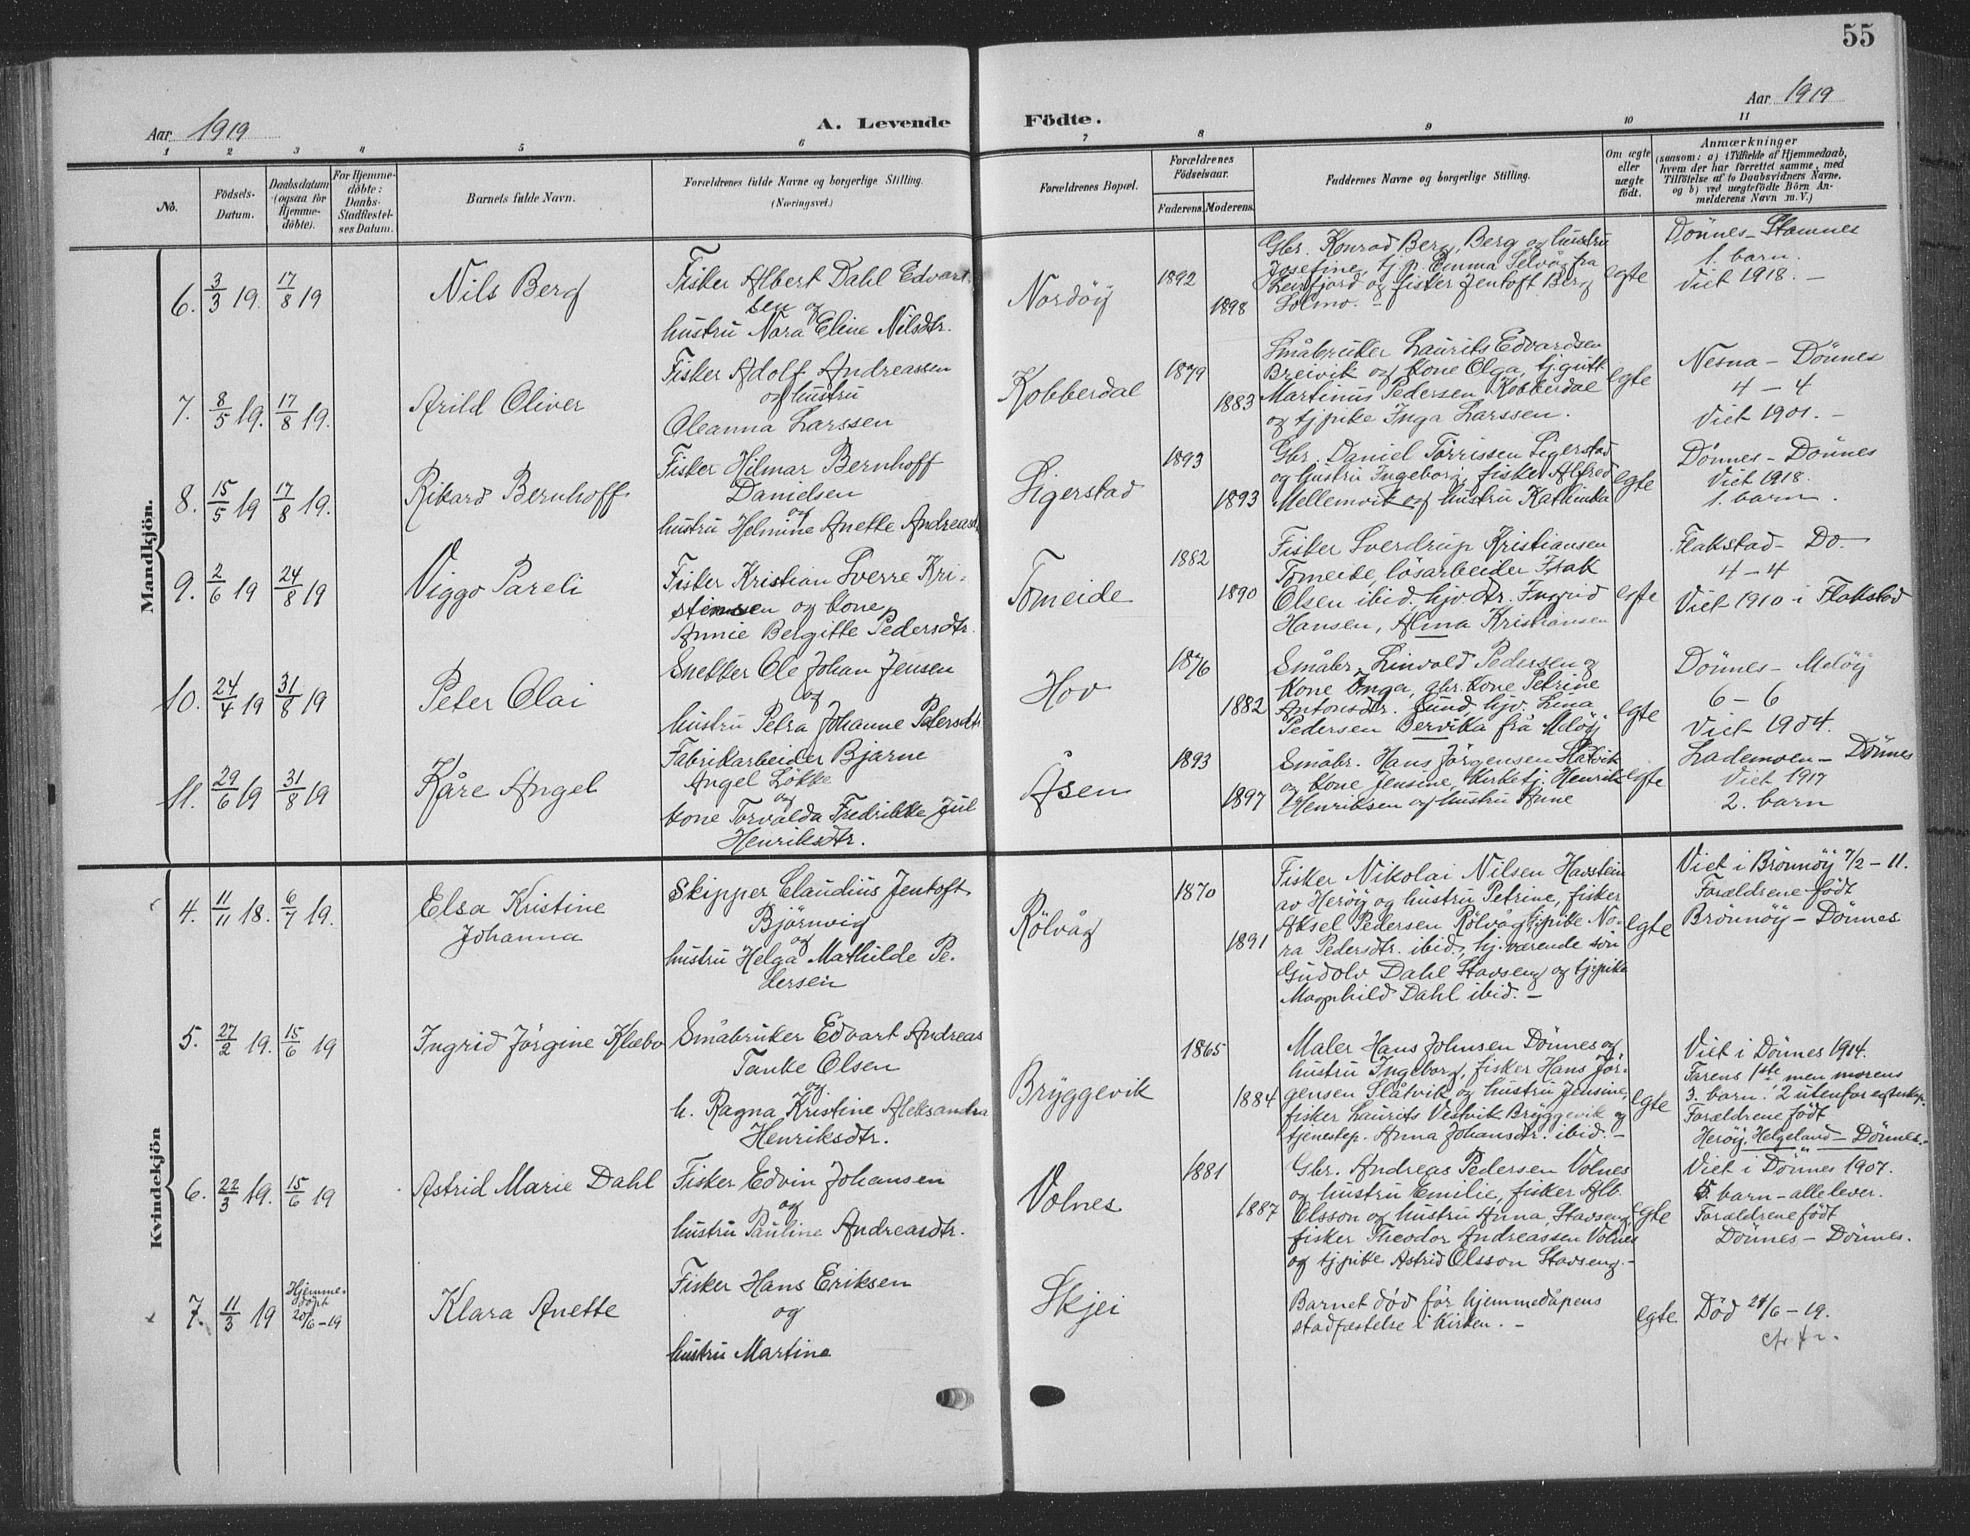 55
Aar 1919
A. Levende Födte.
Aar 1919
1 2 3 4 5 6 7 8 9 10 11
No.
Födsels-
Datum.
Daabsdatum
(ogsaa for
Hjemme-
döbte).
For Hjemme-
döbte:
Daabs-
Stadfæstel-
ses Datum.
Barnets fulde Navn.
Forældrenes fulde Navne og borgerlige Stilling.
(Næringsvei.)
Forældrenes Bopæl.
Forældrenes
Födselsaar.
Faderens. Moderens.
Faddernes Navne og borgerlige Stilling.
Om ægte
eller
uægte
født.
Anmærkninger
(saasom: a) i Tilfælde af Hjemmedaab,
hvem der har forrettet samme, med
Tilföielse af to Daabsvidners Navne.
og b) ved uægtefödte Börn An-
melderens Navn m. V.)
Mandkjön.
6. 3/3 19. 17/8 19
Nils Berg
Fisker Albert Dahl Edvart-
sen og
hustru Nora Eline Nilsdtr.
Nordöy
1892
1898
Gbr. Konrad Berg, Berg og hustru
Josefine, tj.p. Emma Selvåg fra
Leirfjord og fisker Jentoft Berg
Solmo. -
egte
Dönnes - Stamnes
1. barn.
Viet 1918. -
7. 8/5 19. 17/8 19.
Arild Oliver
Fisker Adolf Andreassen
og hustru
Oleanna Larssen
Kobberdal
1879
1883
Småbruker Laurits Edvardsen
Breivik og kone Olga, tj.gutt
Martinus Pedersen Kobberdal
og tj.pike Inga Larssen.
egte
Nesna - Dönnes
4 - 4
Viet 1901. -
8. 15/5 19 17/8 19.
Rikard Bernhoff
Fisker Hilmar Bernhoff
Danielsen
og
hustru Helmine Anette Andreasdtr
Sigerstad
1893
1893
Gbr. Daniel Torrissen Sigerstad
og hustru Ingeborg, fisker Alfred
Mellemvik og hustru Kathinka
egte
Dönnes - Dönnes
Viet 1918.
1. barn.
9. 2/6 19 24/8 19
Viggo Pareli
Fisker Kristian Sverre Kri-
stiansen og kone,
Annie Bergitte Pedersdtr.
Tomeide
1882
1890
Fisker Sverdrup Kristiansen
Tomeide, lösarbeider Isak
Olsen ibid. hjv. dtr. Ingrid
Hansen, Alma Kristiansen
egte
Flakstad - Do.
4 - 4
Viet 1910 i Flakstad
10. 24/4 19 31/8 19
Peter Olai
Snekker Ole Johan Jensen
og
hustru Petra Johanne Petersdtr
Hov
1876
1882
Småbr. Linvald Pedersen og
kone Inga, gbr. kone Petrine
Antonsdtr. Sund, hjv. Lina
Pedersen Bervika frå Melöy
egte
Dönnes - Melöy
6 - 6
Viet 1904.
11. 29/6 19 31/8 19
Kåre Angel
Fabrikarbeider Bjarne
Angel Lökke
og
kone Torvalda Fredrikke Jul
Henriksdtr.
Åsen
1893
1897
Småbr. Hans Jörgensen Slåtvik
og kone Jensine, kirketj. Henrik
Henriksen og hustru Anne
egte
Lademoen - Dönnes
Viet 1917
2. barn
Kvindekjön
4. 11/11 18. 6/7 19.
Elsa Kristine
Johanna
Skipper Claudius Jentoft
Björnvig
og
hustru Helga Mathilde Pe-
dersen
Rölvåg
1870
1891
Fisker Nikolai Nilsen Havstein
av Heröy og hustru Petrine, fisker
Aksel Pedersen Rölvåg, tj.pike No-
ra Pedersdtr. ibid., hj. værende sön
Gudolv Dahl Stavseng og tj.pike
Magnhild Dahl ibid. -
egte
Viet i Brönnöy 7/2 - 11.
Forældrene födt
Brönnöy - Dönnes
5. 27/2 19. 15/6 19
Ingrid Jörgine Klæbo
Småbruker Edvart Andreas
Tanke Olsen
og
h. Ragna Kristine Aleksandra
Henriksdtr.
Bryggevik
1865
1884
Maler Hans Johnsen Dönnes og
hustru Ingeborg, fisker Hans Jör-
gensen Slåtvik og hustru Jensine,
fisker Laurits Vestvik Bryggevik og
tjenestep. Anna Johansdtr. ibid. -
egte
Viet i Dönnes 1914.
Farens 1ste men morens
3. barn. 2 utenfor egteskap.
Forældrene födt
Heröy, Helgeland - Dönnes.
6. 22/3 19. 15/6 19
Astrid Marie Dahl
Fisker Edvin Johansen
og
hustru Pauline Andreasdtr.
Volnes
1881
1887
Gbr. Andreas Pedersen Volnes
og hustru Emilie, fisker Alb.
Olsson og hustru Anna, Stavseng,
fisker Theodor Andreassen Volnes
og tj.pike Astrid Olsson Stavseng. -
egte
Viet i Dönnes 1907.
5. barn - alle lever.
Forældrene födt
Dönnes - Dönnes.
7. 11/3 19
Hjemme-
döpt
20/6 - 19
Klara Anette
Fisker Hans Eriksen
og
hustru Martine
Skjei
Barnet död för hjemmedåpens
stadfæstelse i kirken. -
egte
Död 21/6 - 19.